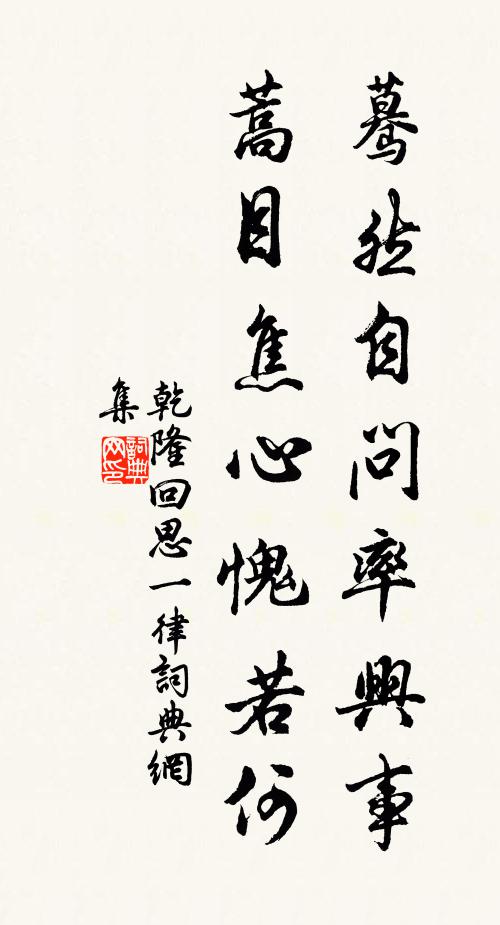 驀然自問率興事
蒿目焦心愧若何
乾隆回思一律詞典網
集
詞典網印